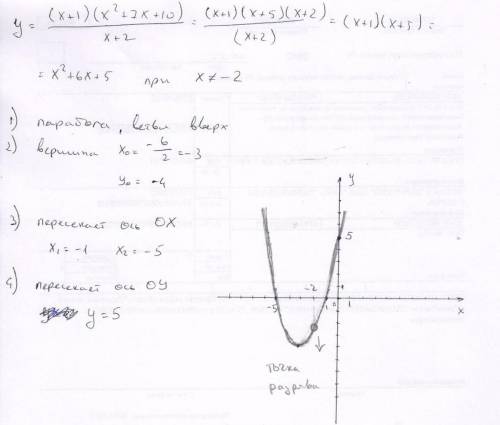 y = (x+1)(x²+7x+10) / x+2 = (x+1)(x+5)(x+2) / (x+2) = (x+1)(x+5) =
= x²+6x+5 при x ≠ -2
1) парабола, ветви вверх
2) вершина x₀ = -6/2 = -3
y₀ = -4
3) пересекает ось OX
x₁ = -1 x₂ = -5
4) пересекает ось OY
y = 5
y
5
-2
-5 -1 0 1
x
точка
разрыва